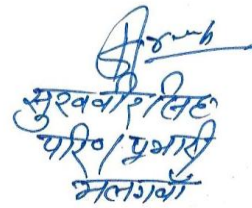 सुखवीर सिंह
परि०/प्रभारी
मलगवाँ